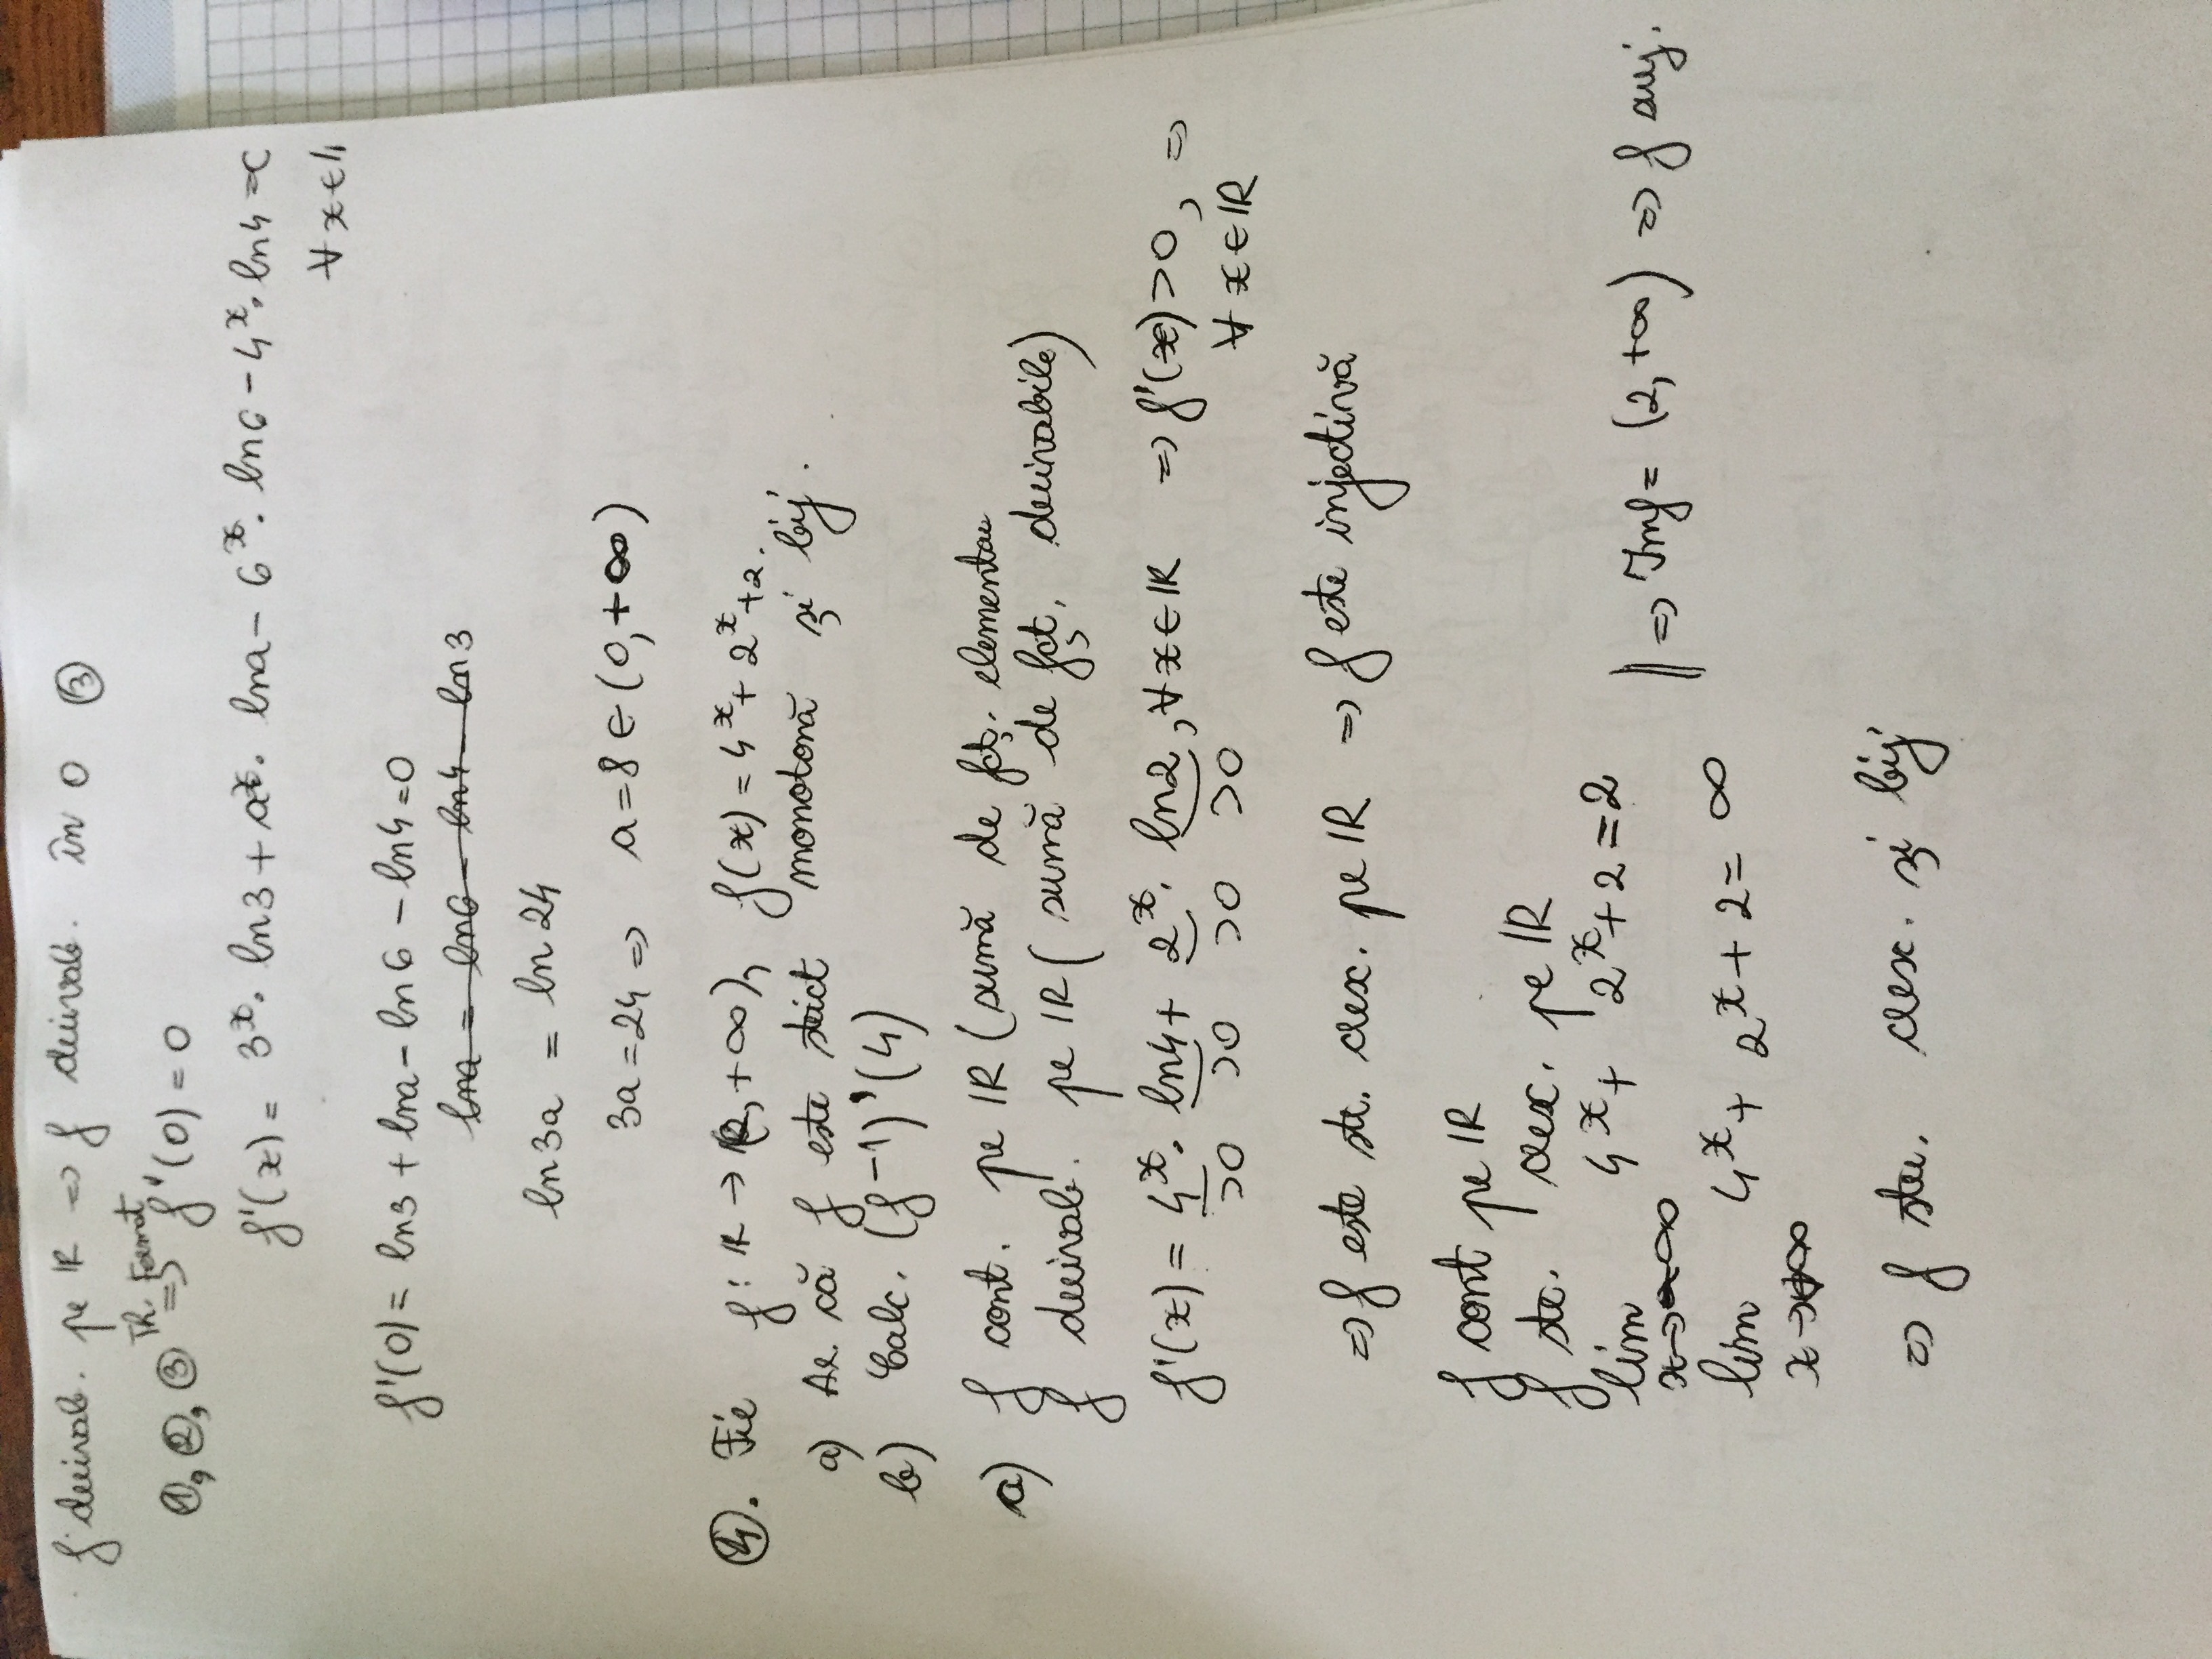 f derivab. pe ℝ => f derivab. în 0 ③
①, ②, ③ Th. Fermat => f'(0) = 0
f'(x) = 3^x · ln3 + a^x · lna - 6^x · ln6 - 4^x · ln4 =
∀ x ∈
f'(0) = ln3 + lna - ln6 - ln4 = 0
lna = ln6 - ln4 - ln3
ln3a = ln24
3a = 24 => a = 8 ∈ (0, +∞)
④. Fie f: ℝ → (2, +∞), f(x) = 4^x + 2^x + 2.
a) Ar. că f este strict monotonă și bij.
b) Calc. (f^-1)'(4)
a) f cont. pe ℝ (sumă de fcț. elementare
f derivab. pe ℝ (sumă de fcț. derivabile)
f'(x) = 4^x · ln4 + 2^x · ln2, ∀ x ∈ ℝ => f'(x) > 0, =>
>0 >0 >0 >0 ∀ x ∈ ℝ
=> f este str. cresc. pe ℝ => f este injectivă
f cont pe ℝ
f str. cresc. pe ℝ
lim 4^x + 2^x + 2 = 2
x→-∞
|| => Imf = (2, +∞) => f surj.
lim 4^x + 2^x + 2 = ∞
x→+∞
=> f str. cresc. și bij